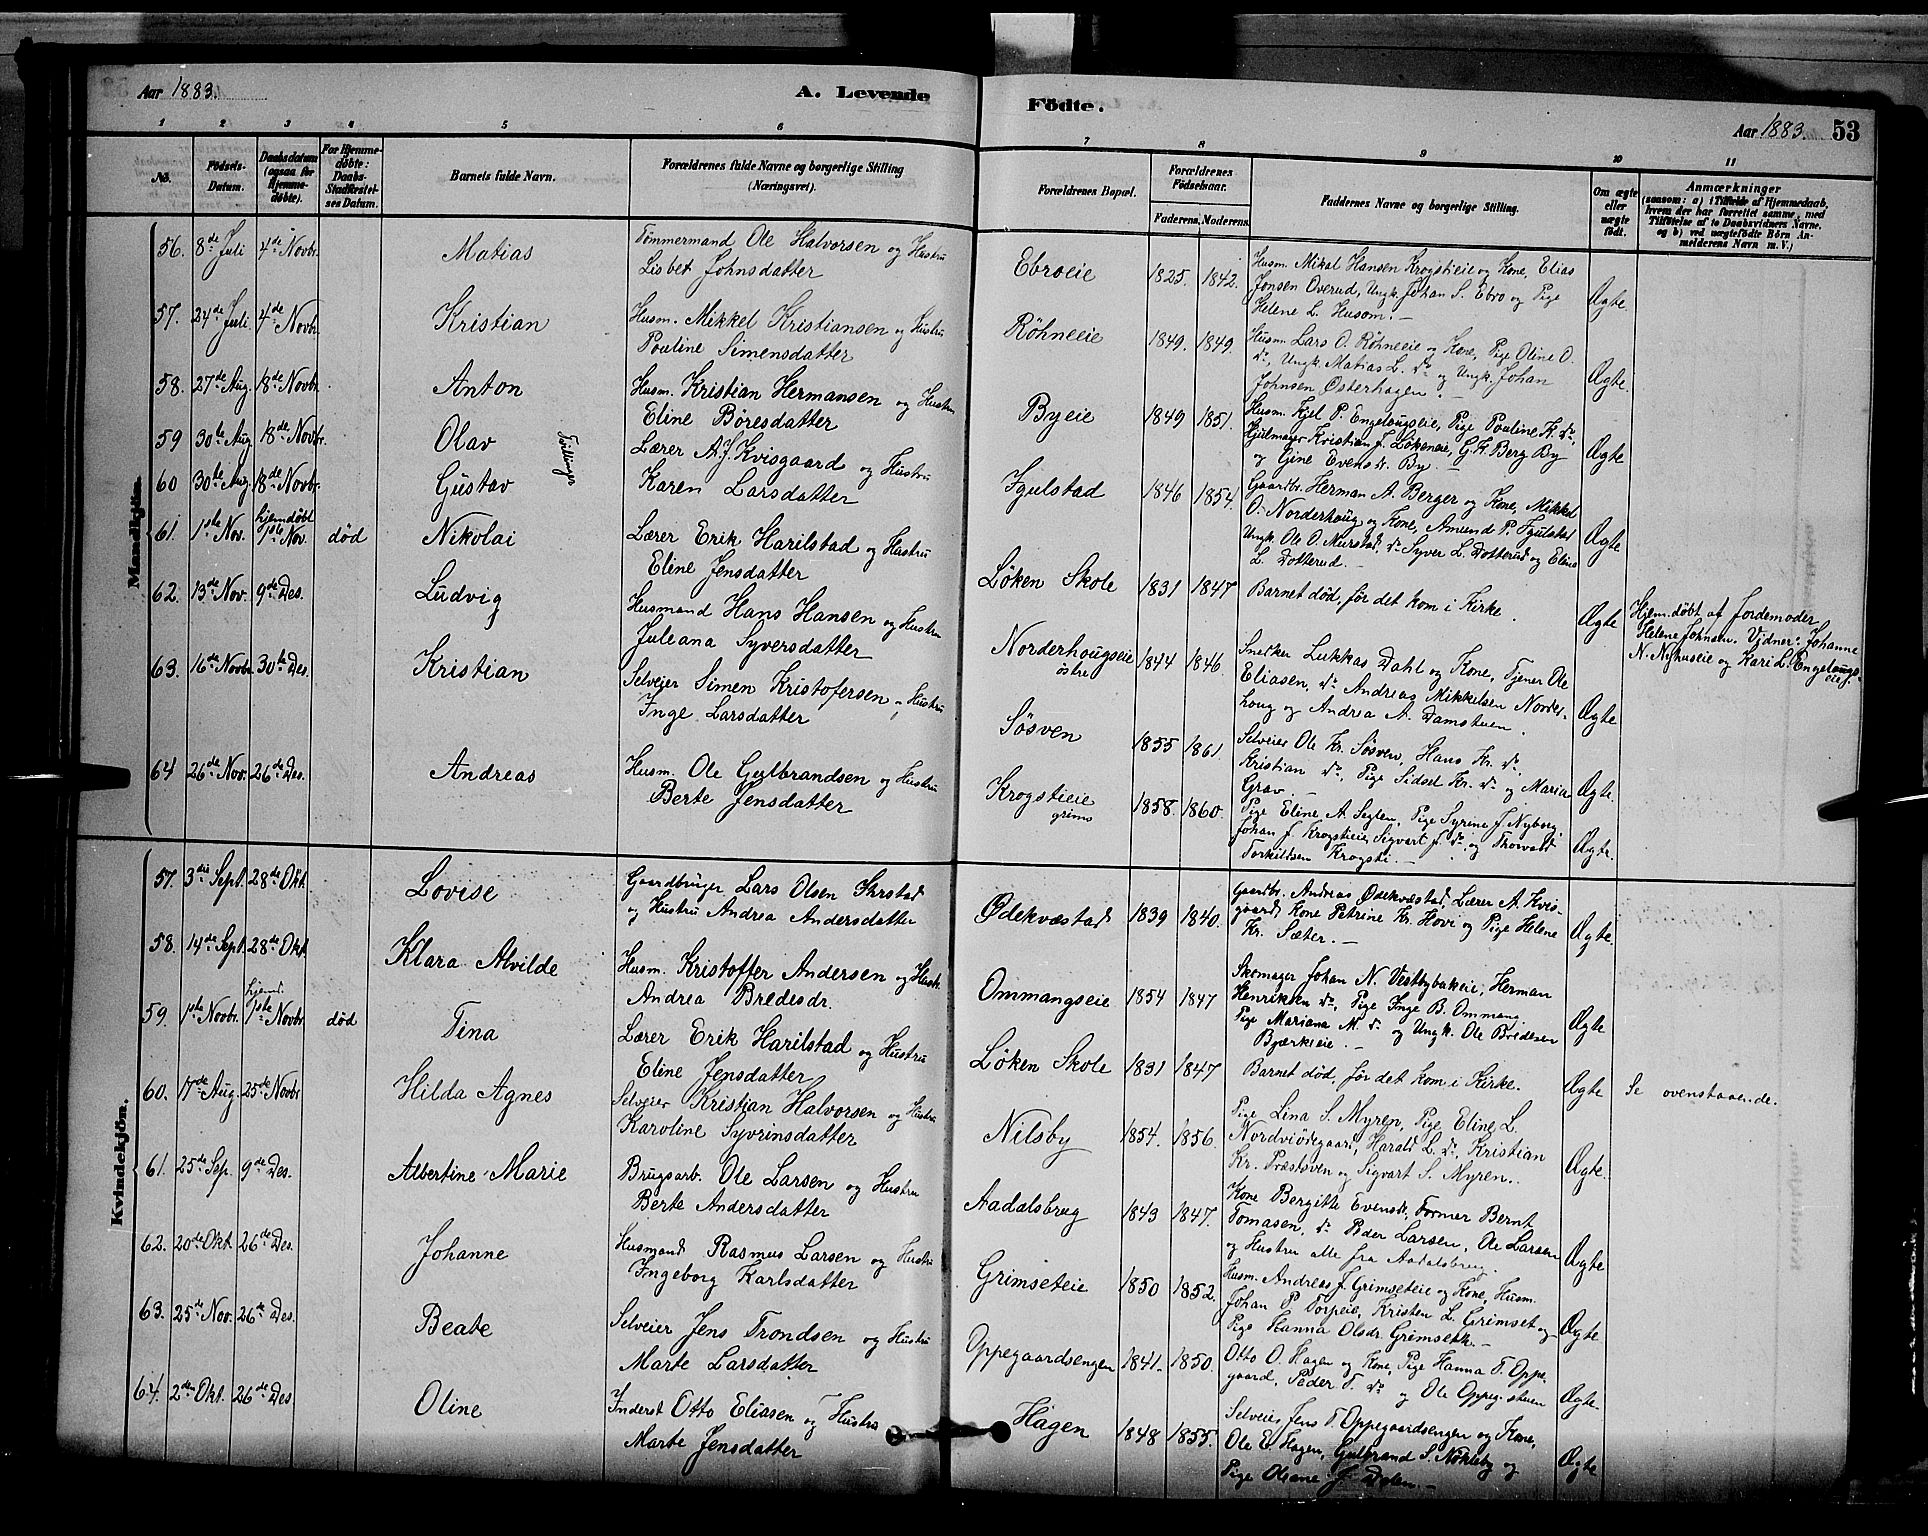 Aar 1883.
A. Levende Födte.
Aar 1883. 53
1 2 3 4 5 6 7 8 9 10 11
No. Födsels-Datum. Daabsdatum (ogsaa for Hjemmedøbte). For Hjemmedøbte: Daabs-Stadfæstelses Datum. Barnets fulde Navn. Forældrenes fulde Navne og borgerlige Stilling (Næringsvei). Forældrenes Bopæl. Forældrenes Födselsaar. Faderens. Moderens. Faddernes Navne og borgerlige Stilling. Om ægte eller uægte födt. Anmærkninger (saasom: a) i Tilfælde af Hjemmedaab, hvem der har forrettet samme, med Tilföielse af to Daabsvidners Navne, og b) ved uægtefödte Börn Anmelderens Navn m. V.)
Mandkjön.
56. 8de Juli 4de Novbr. Matias Tømmermand Ole Halvorsen og Hustru
Lisbet Johnsdatter Ebroeie 1825. 1842. Husm. Mikal Hansen Krogstieie og Kone, Elias
Jonsen Overud, Ungk. Johan S. Ebro og Pige
Helene L. Husom. — Ægte.
57. 24de Juli 4de Novbr Kristian Husm. Mikkel Kristiansen og Hustru
Pouline Simensdatter Röhneeie 1849. 1849. Husm. Lars O. Röhneeie og Kone, Pige Oline O.
do, Ungk. Matias L. do og Ungk. Johan
Johnsen Østerhagen. — Ægte.
58. 27de Aug. 18de Novbr. Anton Husm. Kristian Hermansen og Hustru
Eline Böresdatter Byeie 1849 1851. Husm. Kjel P. Engelougseie, Pige Pouline K. do,
Hjulmager Kristian J. Lökeneie, G. K. Berg By
og Gine Evensdr. By. Ægte
59 30te Aug 18de Novbr. Olav Tvillinger Lærer A. J. Kvisgaard og Hustru
60 30te Aug 18de Novbr. Gustav Karen Larsdatter Igulstad 1846 1854. Gaardbr. Herman A. Berger og Kone, Mikkel
O. Norderhoug og Kone, Amund P. Igulstad
Ungk. Ole O. Murstad, do Syver L. Dotterud og Eline
L. Dotterud. — Ægte
61. 1ste Nov. hjemdöbt 1ste Nov. död Nikolai Lærer Erik Harilstad og Hustru
Eline Jensdatter Löken Skole 1831 1847 Barnet död, för det kom i Kirke. Ægte Hjem.döbt af Jordemoder
Helene Johnsen. Vidner: Johanne
N. Nyhuseie og Kari L. Engelougs
eie.
62. 13de Nov. 9de Des. Ludvig Husmand Hans Hansen og Hustru
Juleana Syversdatter Norderhougseie östre 1844 1846. Snedker Lukkas Dahl og Kone, Tjener Ole
Eliasen, do Andreas Mikkelsen Norder-
houg og Andrea A. Damstuen. Ægte
63. 16de Novbr 30te Des. Kristian Selveier Simen Kristofersen og Hustru
Inge Larsdatter Sösven 1855 1861. Selveier Ole Kr. Sösven, Hans Kr. do,
Kristian do, Pige Sidsel Kr. do og Maria
Grav. — Ægte.
64 26de Nov. 26de Des. Andreas Husm. Ole Gulbrandsen og Hustru
Berte Jensdatter Krogstieie grims 1858. 1860. Pige Eline A. Seglen, Pige Syrine J. Nyborg,
Johan J. Krogstieie, Sigvart J. do, og Thorvald
Torkildsen Krogsti. — Ægte.
Kvindekjön.
57. 3die Sept. 28de Okt. Lovise Gaardbruger Lars Olsen Skrstad
og Hustru Andrea Andersdatter Ødekvæstad 1839 1840. Gaardbr. Andreas Ødekvæstad, Lærer A. Kvis-
gaards Kone Petrine Kr. Hovi og Pige Helene
Kr. Sæter. — Ægte.
58. 14de Sept. 28de Okt. Klara Alvilde Husm. Kristoffer Andersen og Hustr.
Andrea Bredesdr. Ommangseie 1854 1847 Skomager Johan N. Vestbybakeie, Herman
Henriksen do, Pige Inge B. Ommang,
Pige Mariana M. do og Ungk. Ole Bredesen
Bjerkeeie. — Ægte.
59. 1ste Novbr. hjemd. 1ste Novbr död Tina Lærer Erik Harilstad og Hustru
Eline Jensdatter Löken Skole 1831 1847 Barnet död, för det kom i Kirke. Ægte Se ovenstaaende.
60. 17de Aug. 25de Novbr Hilda Agnes Selveier Kristian Halvorsen og Hustru
Karoline Syvrinsdatter Nilsby 1854. 1856. Pige Lina S. Myren, Pige Eline L.
Nordviödegaard, Harald L. do, Kristian
Kr. Præstöven og Sigvart S. Myren. Ægte.
61. 25de Sep. 9de Des. Albertine Marie Brugsarb. Ole Larsen og Hustru
Berte Andersdatter Aadalsbrug 1843 1847. Kone Bergitte Evensdr, Former Bernt
Tomasen, do Peder Larsen, Ole Larsen
og Hustru alle fra Aadalsbrug. Ægte
62. 20de Okt. 26de Des. Johanne Husmand Rasmus Larsen og Hustru
Ingeborg Karlsdatter Grimseteie 1850 1852. Husm. Andreas J. Grimseteie og Kone, Husm.
Johan P. Torpeie, Kristen L. Grimset og
Pige Hanna Olsdr. Grimseth. — Ægte
63. 25de Nov. 26de Des. Beate Selveier Jens Trondsen og Hustru
Marte Larsdatter Oppegaardsengen 1841. 1850. Otto O. Hagen og Kone, Pige Hanna T. Oppe-
gaard, Peder T. do og Ole Oppeg.stuen Ægte
64. 2den Okt. 26de Des Oline Inderst Otto Eliasen og Hustru
Marte Jensdatter Hagen 1848 1855. Selveier Jens T. Oppegaardsengen og Kone,
Ole E. Hagen, Gulbrand S. Nökleby og
Pige Oleane J. Dalen. — Ægte